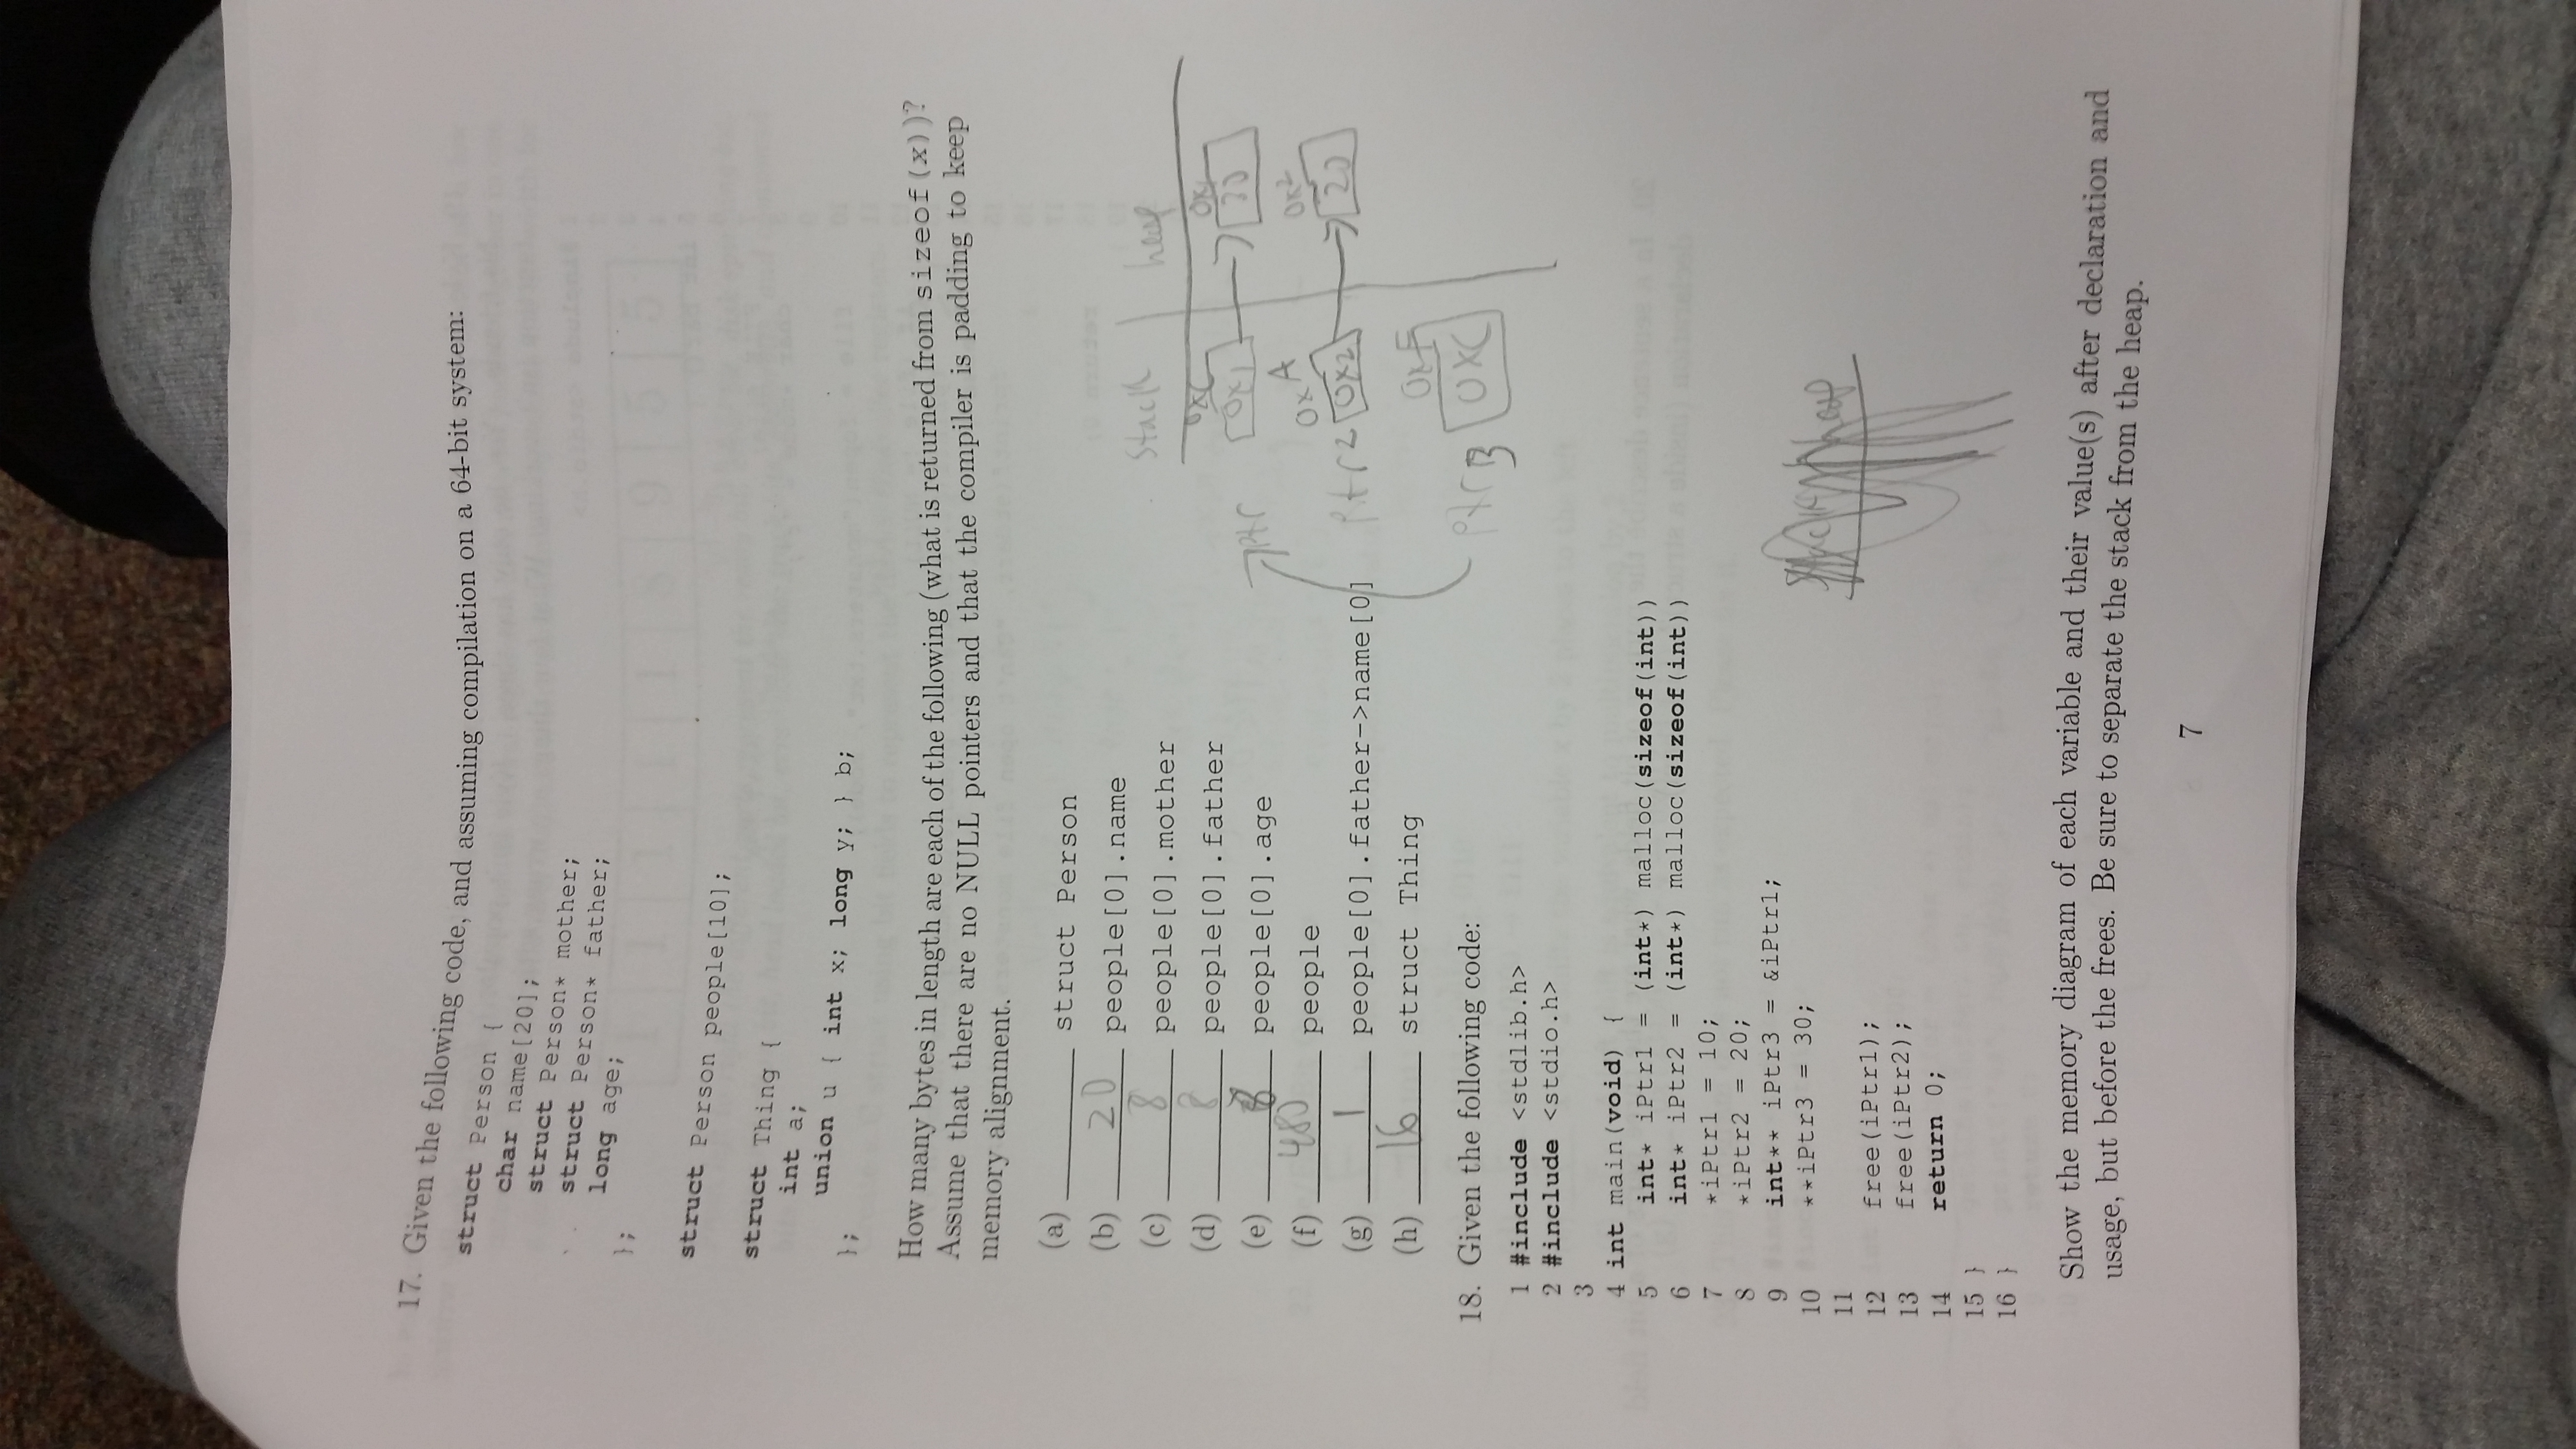 17. Given the following code, and assuming compilation on a 64-bit system:
struct Person {
char name[20];
struct Person* mother;
struct Person* father;
long age;
};
struct Person people[10];
struct Thing {
int a;
union u { int x; long y; } b;
};
How many bytes in length are each of the following (what is returned from sizeof(x))?
Assume that there are no NULL pointers and that the compiler is padding to keep
memory alignment.
(a) ______ struct Person
(b) 20 people[0].name
(c) 8 people[0].mother
(d) 8 people[0].father
(e) 8 people[0].age
(f) 480 people
(g) 1 people[0].father->name[0]
(h) 16 struct Thing
stack heap
0xC 0x1
ptr 0x1 30
0xA 0x2
ptr2 0x2 20
0xF
ptr3 0xC
18. Given the following code:
1 #include <stdlib.h>
2 #include <stdio.h>
3
4 int main(void) {
5 int* iPtr1 = (int*) malloc(sizeof(int))
6 int* iPtr2 = (int*) malloc(sizeof(int))
7 *iPtr1 = 10;
8 *iPtr2 = 20;
9 int** iPtr3 = &iPtr1;
10 **iPtr3 = 30;
11
12 free(iPtr1);
13 free(iPtr2);
14 return 0;
15 }
16 }
heap
Show the memory diagram of each variable and their value(s) after declaration and
usage, but before the frees. Be sure to separate the stack from the heap.
7